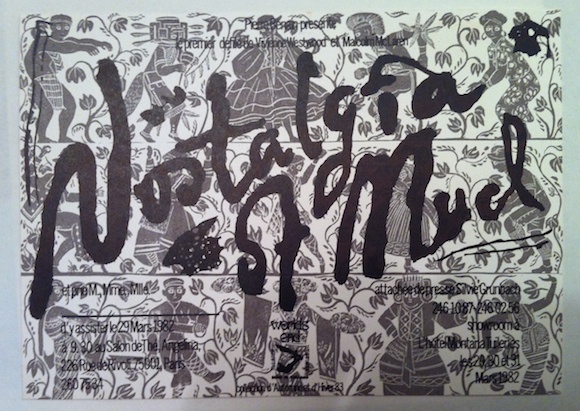 Pierre présente
le premier défilé de Vivienne Westwood et Malcolm McLaren
Nostalgia
of Mud
et prie M., Mme., Mlle.
d'y assister le 29 Mars 1982
à 9.30 au Salon de Thé, Angelina,
226 Rue de Rivoli 75001, Paris
260 75 34
worlds
end
collection d'Automne et d'Hiver 83
attachée de presse Silvie Grunbach
246 10 87-246 02 56
showroom à
L'hôtel Montana Tuileries
les 29,30 et 31
Mars 1982